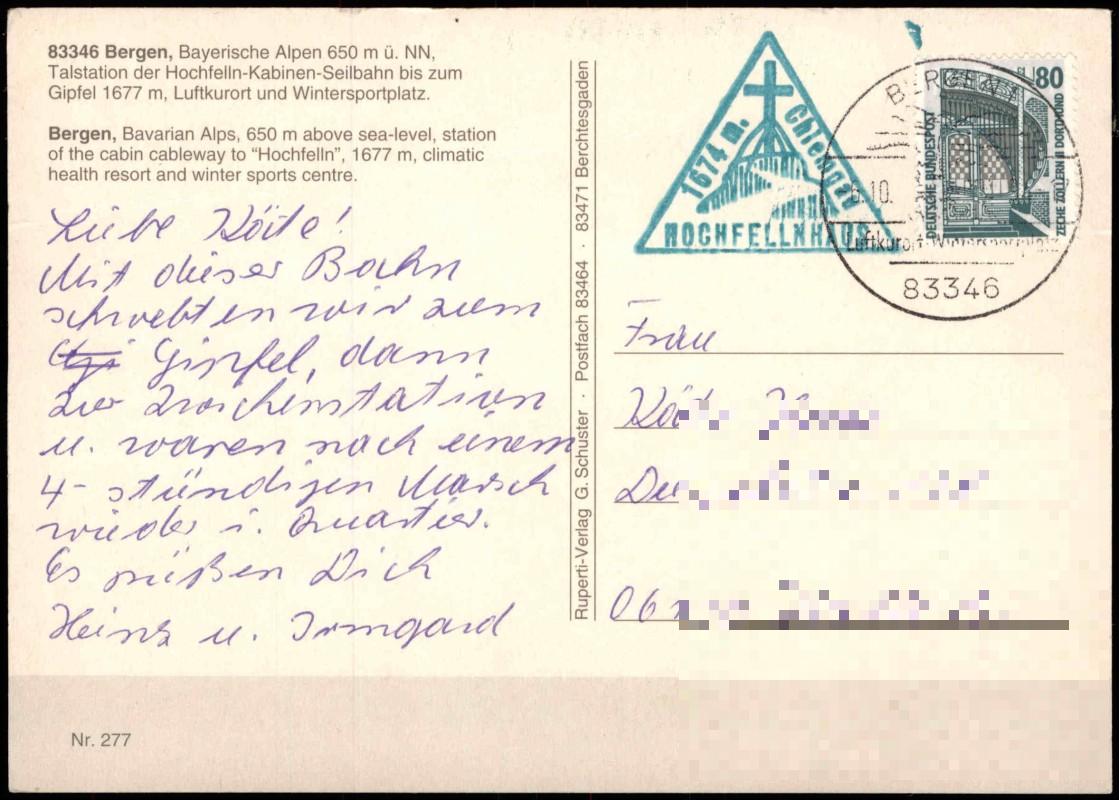 83346 Bergen, Bayerische Alpen 650 m ü. NN,
Talstation der Hochfelln-Kabinen-Seilbahn bis zum
Gipfel 1677 m, Luftkurort und Wintersportplatz.
Bergen, Bavarian Alps, 650 m above sea-level, station
of the cabin cableway to “Hochfelln”, 1677 m, climatic
health resort and winter sports centre.
Liebe Käte!
Mit dieser Bahn
schwebten wir zum
Gipfel, dann
zur Zwischenstation
u. waren nach einem
4-stündigen Marsch
wieder i. Quartier.
Es grüßen Dich
Heinz u. Irmgard
Nr. 277
Ruperti-Verlag G. Schuster · Postfach 83464 · 83471 Berchtesgaden
1674 m.
Chiemgau
HOCHFELLNHAUS
BERGEN
.10.
Luftkurort Wintersportplatz
83346
80
DEUTSCHE BUNDESPOST
ZECHE ZOLLERN II DORTMUND
Frau
06